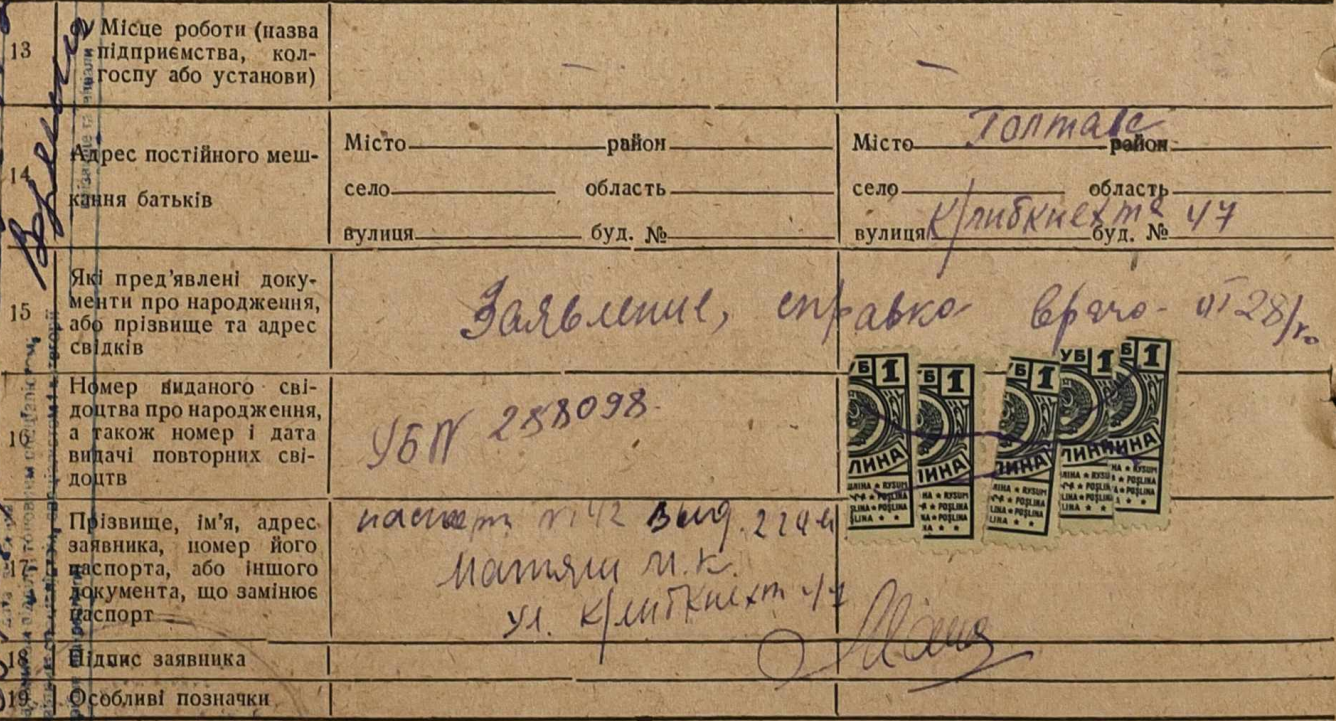 13 Місце роботи (назва
підприємства, кол-
госпу або установи) — —
14 Адрес постійного меш-
кання батьків
Місто район
село область
вулиця буд. №
Місто район
село область
К/либкнехта 47
вулиця буд. №
15 Які пред’явлені доку-
менти про народження,
або прізвище та адрес
свідків
Заявление, справка врача от 28/
16 Номер виданого сві-
доцтва про народження,
а також номер і дата
видачі повторних сві-
доцтв
УБ № 288098
УБ 1 Б 1 Б 1 УБ 1 Б 1
ЛИНА ЛИНА ЛИНА ЛИНА ЛИНА
RYSUM
POŞLINA
17 Прізвище, ім’я, адрес
заявника, номер його
паспорта, або іншого
документа, що замінює
паспорт
паспорт № 42 выд.
М.К.
ул. К/либкнехт 47
18 Підпис заявника
19 Особливі позначки